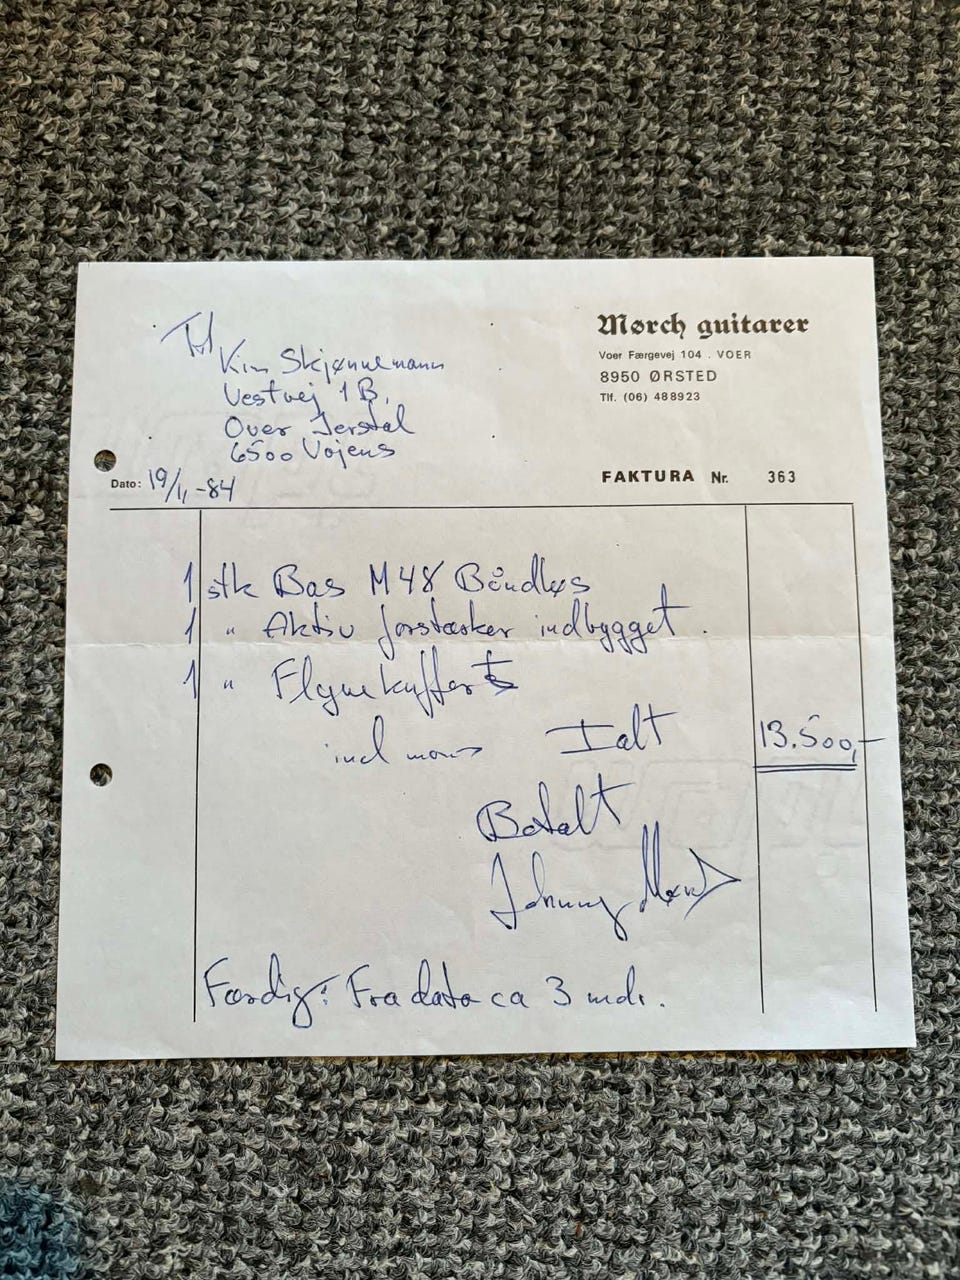 Mørch guitarer
Voer Færgevej 104 . VOER
8950 ØRSTED
Tlf. (06) 488923
Til
Kim Skjønnemann
Vestvej 1B.
Over Jerstal
6500 Vojens
Dato: 19/1, -84
FAKTURA Nr. 363
1 stk Bas M48 Båndløs
1 " Aktiv forstærker indbygget.
1 " Flyvekuffert
incl moms Ialt 13.500,-
Betalt
Johnny Mørch
Færdig: Fra dato ca 3 mdr.